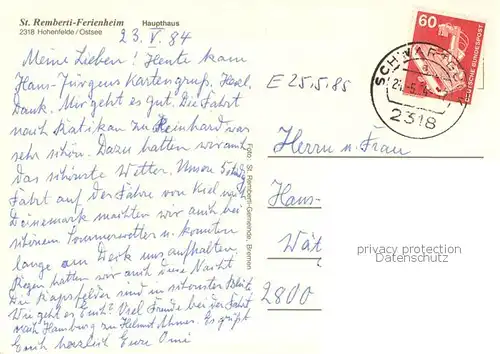 St. Remberti-Ferienheim Haupthaus
2318 Hohenfelde / Ostsee
23. V. 84
Meine Lieben! Heute kam
Hans-Jürgens Kartengruß, Herzl.
Dank. Mir geht es gut. Die Fahrt
nach zu Reinhard war
sehr schön. Dazu hatten wir auch
das schönste Wetter. Unsere
Fahrt auf der Fähre von Kiel nach
Dänemark machten wir auch bei
schönem Sommerwetter u. konnten
lange am Deck uns aufhalten.
Regen hatten wir auch eine Nacht
Die Rapsfelder sind in schönster Blüte
Wie geht es Euch? Viel Freude bei der Fahrt
nach Hamburg zu Helmut Es grüßt
Euch herzlich Eure Omi
Foto: St. Remberti-Gemeinde, Bremen
E 25.5.85
60
DEUTSCHE BUNDESPOST
2318
Herrn u. Frau
Hans-
Wät
2800
privacy protection
Datenschutz